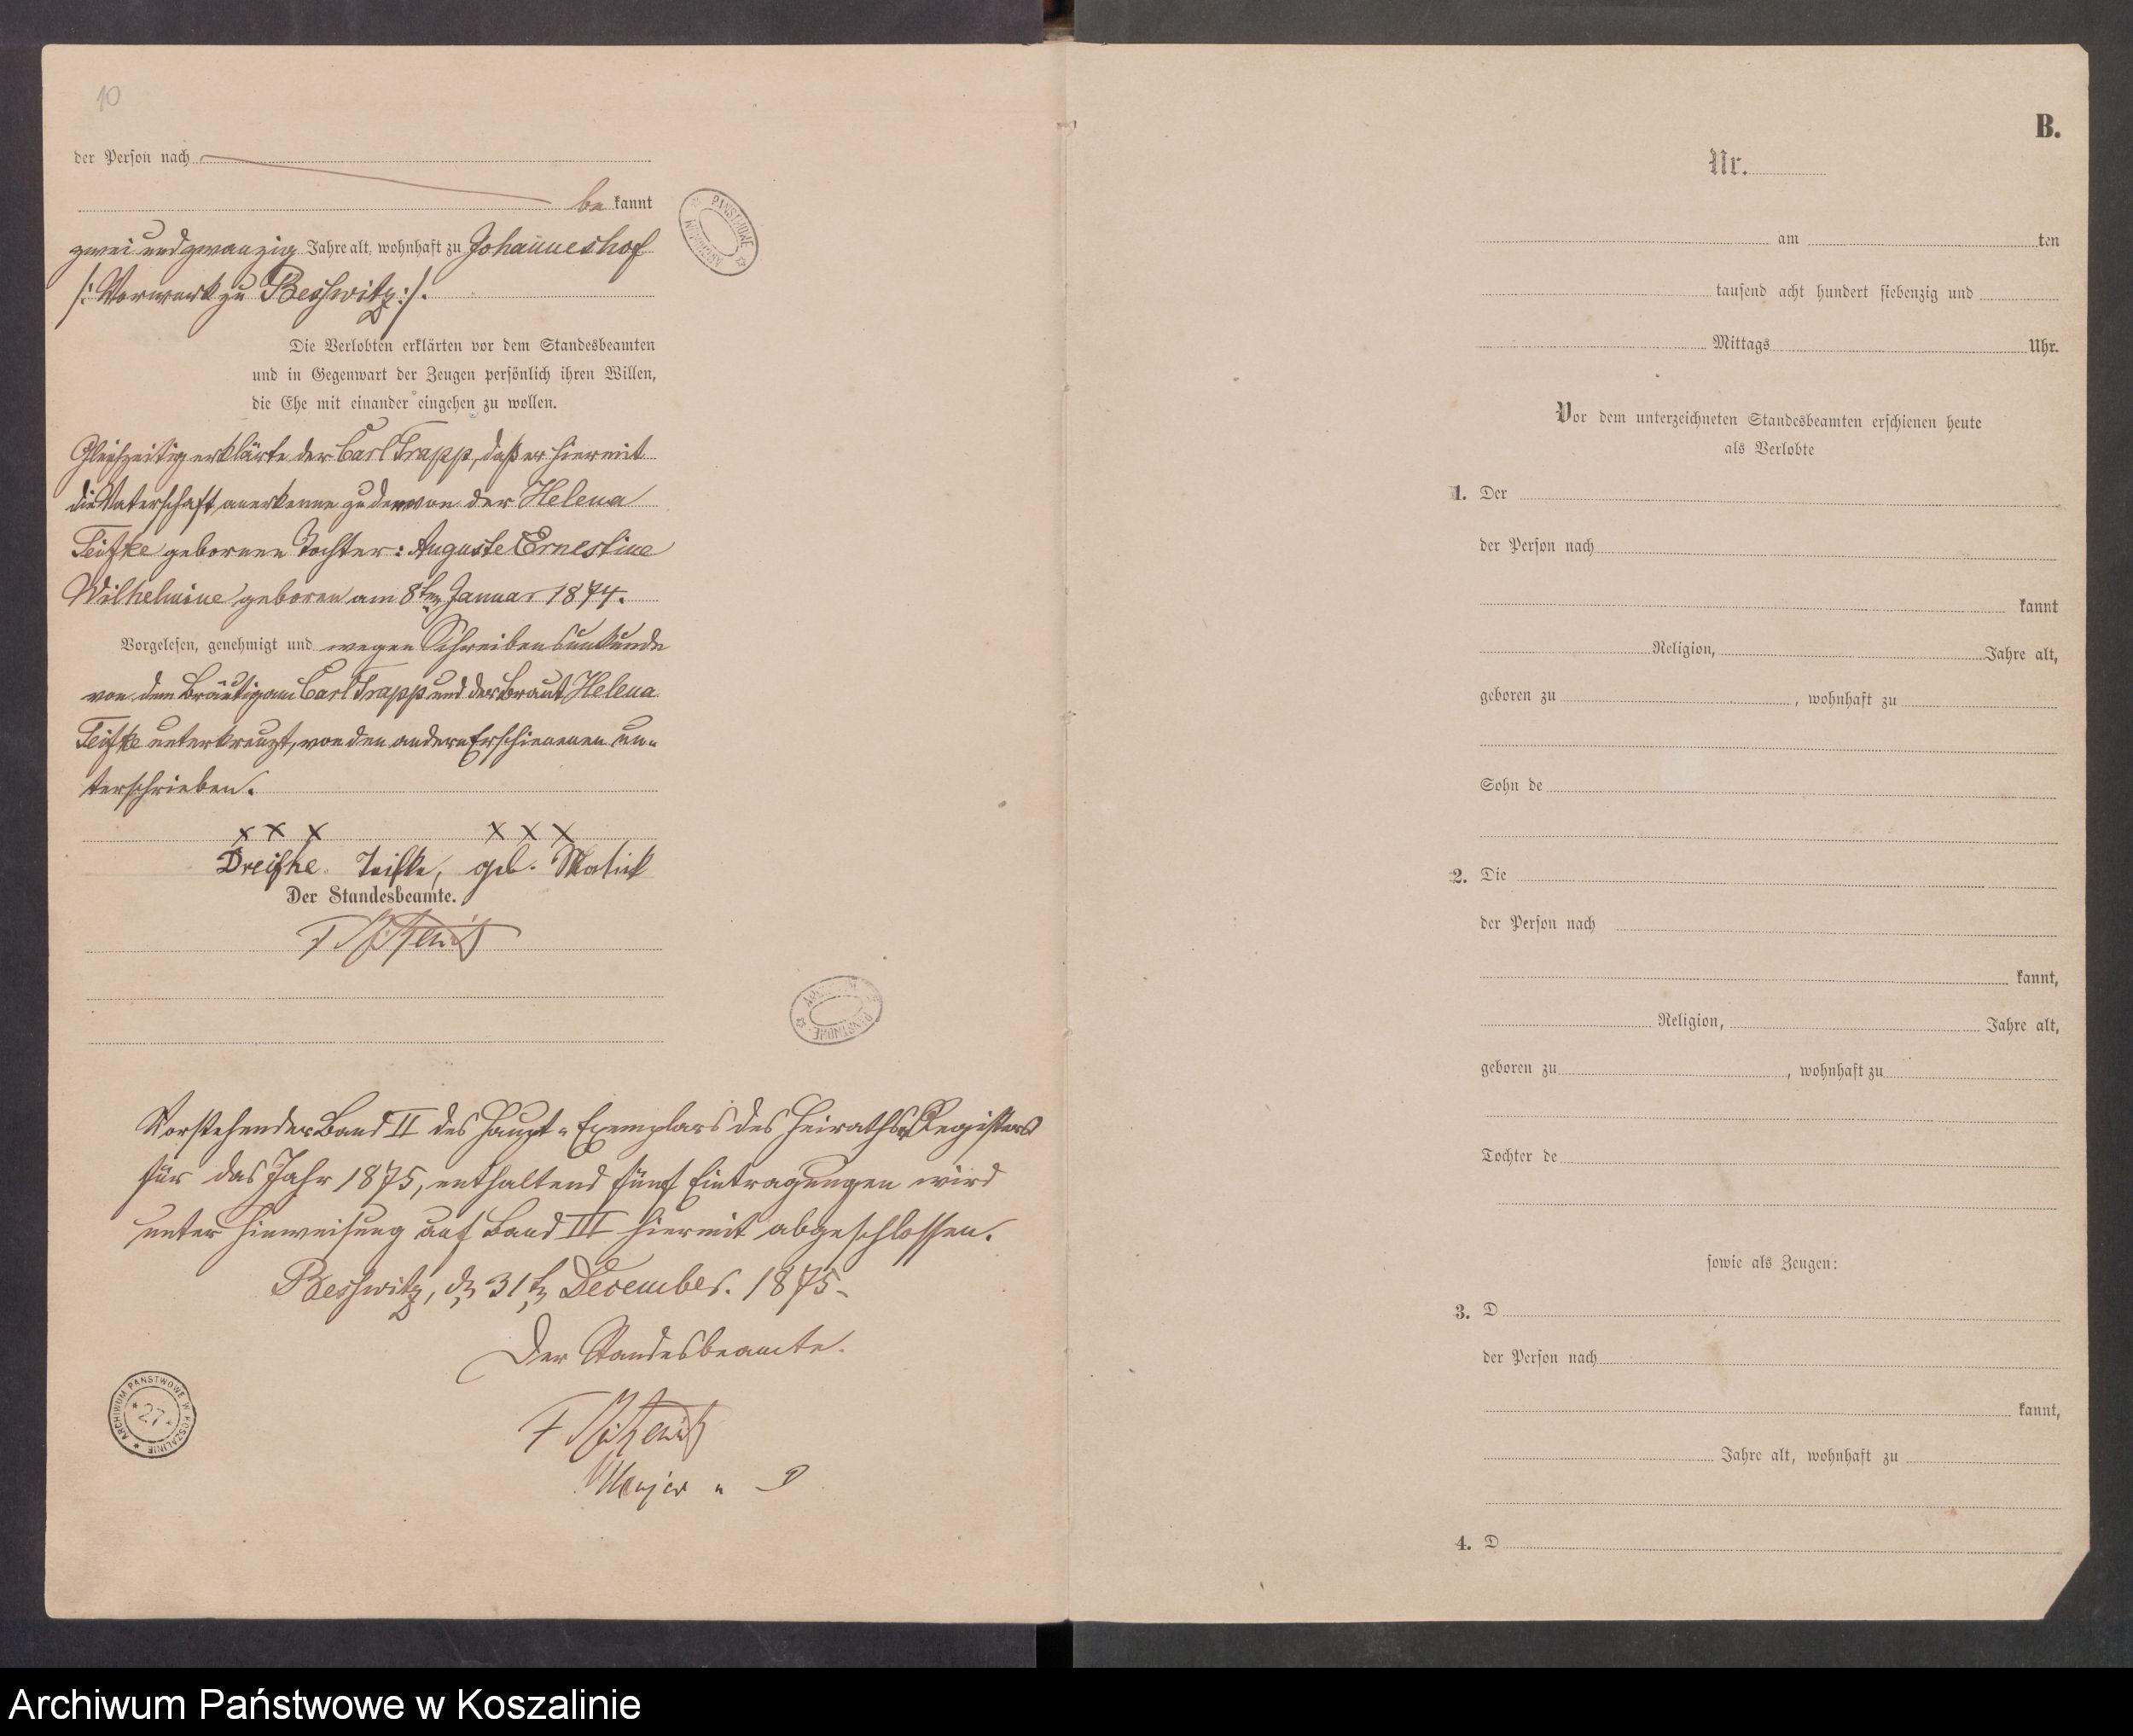 10
der Person nach
be kannt
zwei und zwanzig Jahre alt, wohnhaft zu Johanneshof
/: Vorwerk zu Besswitz :/.
Die Verlobten erklärten vor dem Standesbeamten
und in Gegenwart der Zeugen persönlich ihren Willen,
die Ehe mit einander eingehen zu wollen.
Gleichzeitig erklärte der Carl Trapp, daß er hiermit
die Vaterschaft anerkenne zu der von der Helena
Teifke gebornen Tochter: Auguste Ernestine
Wilhelmine geboren am 8ten Januar 1874.
Vorgelesen, genehmigt und wegen Schreibensunkunde
von dem Bräutigam Carl Trapp und der Braut Helena
Teifke unterkreuzt, von den andern Erschienenen un-
terschrieben.
x x x x x x
Teifke, geb.
Der Standesbeamte.
Vorstehender Band II des Haupt-Exemplars des Heiraths-Registers
für das Jahr 1875, enthaltend fünf Eintragungen wird
unter Hinweisung auf Band III hiermit abgeschlossen.
Besswitz, den 31ten December. 1875.
Der Standesbeamte.
Major
PAŃSTWOWE ARCHIWUM
ARCHIWUM PAŃSTWOWE
ARCHIWUM PAŃSTWOWE W KOSZALINIE
* 27 *
B.
Nr.
am ten
tausend acht hundert siebenzig und
Mittags Uhr.
Vor dem unterzeichneten Standesbeamten erschienen heute
als Verlobte
1. Der
der Person nach
kannt
Religion, Jahre alt,
geboren zu , wohnhaft zu
Sohn de
2. Die
der Person nach
kannt,
Religion, Jahre alt,
geboren zu , wohnhaft zu
Tochter de
sowie als Zeugen:
3. D
der Person nach
kannt,
Jahre alt, wohnhaft zu
4. D
Archiwum Państwowe w Koszalinie